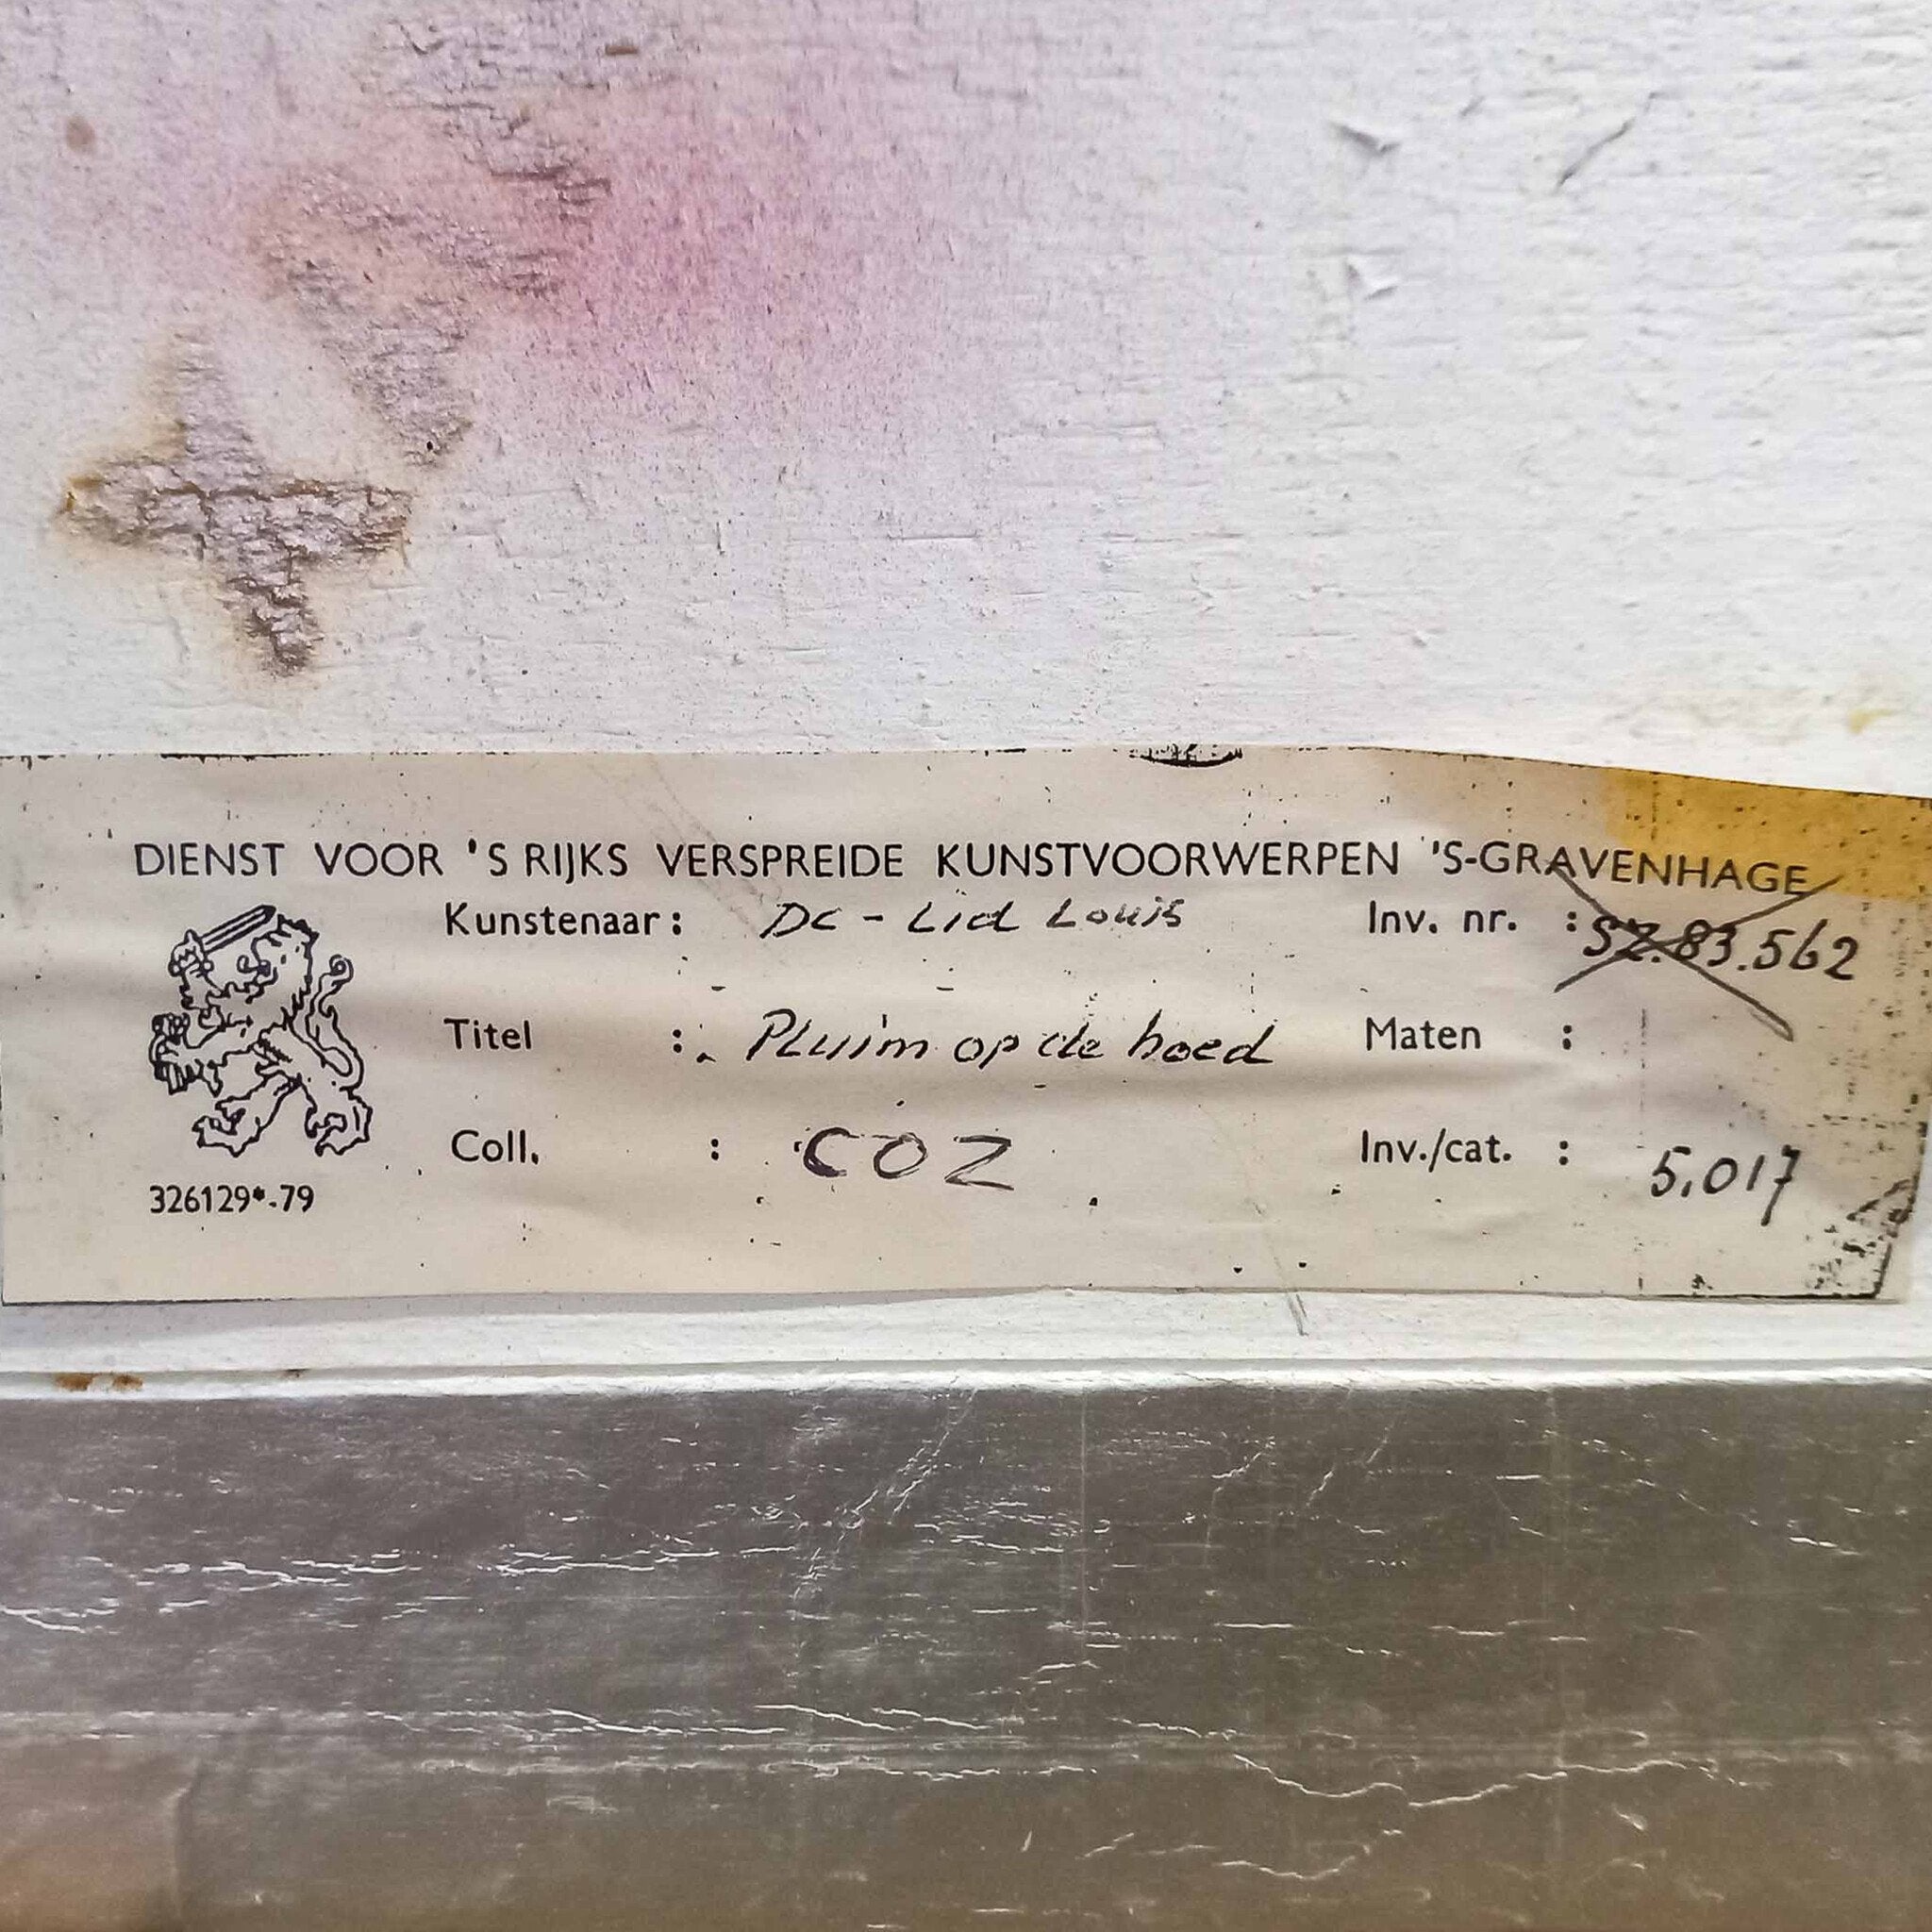 DIENST VOOR 'S RIJKS VERSPREIDE KUNSTVOORWERPEN 'S-GRAVENHAGE
Kunstenaar: DC - Lid Louis Inv. nr. : SZ.83.562
Titel : Pluim op de hoed Maten :
Coll. : COZ Inv./cat. : 5.017
326129*-79